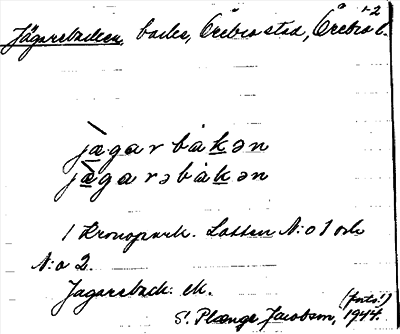 +2
Jägarebacken, backe, Örebro stad, Örebro l.
jæ̀garbåkən
jæ̀garəbåkən
1 Kronopark. Lotten N:o 1 och
N:o 2.
Jagareback: ek.
(forts!)
S. Plænge Jacobson, 1944.